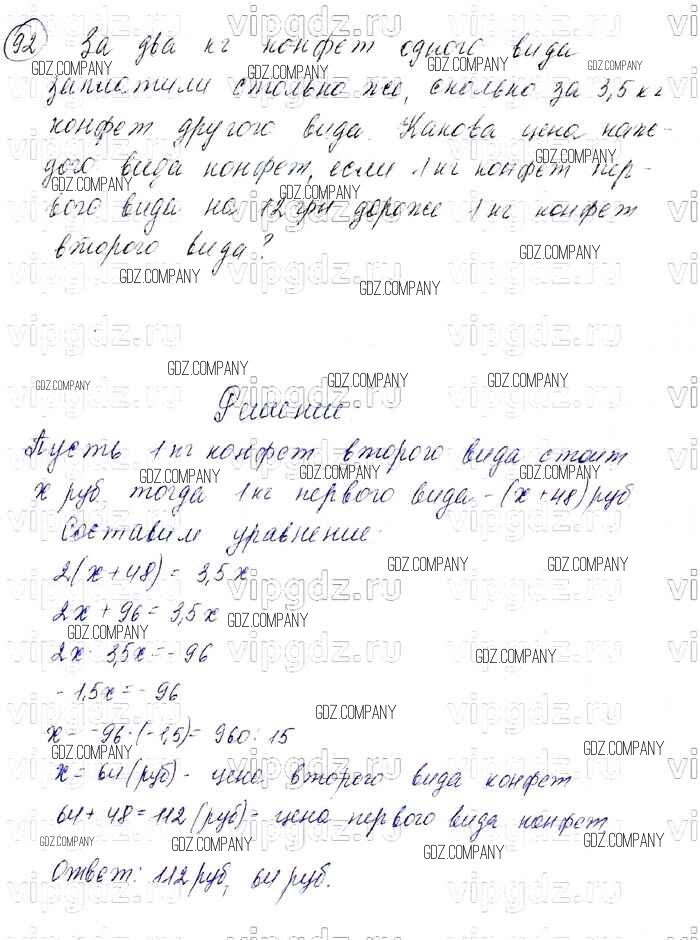 92 За два кг конфет одного вида
заплатили столько же, сколько за 3,5 кг
конфет другого вида. Какова цена каж-
дого вида конфет, если 1 кг конфет пер-
вого вида на 12 грн дороже 1 кг конфет
второго вида?
Решение
Пусть 1 кг конфет второго вида стоит
x руб тогда 1 кг первого вида - (x+48) руб
Составим уравнение:
2(x+48) = 3,5x
2x + 96 = 3,5x
2x - 3,5x = - 96
- 1,5x = - 96
x = -96:(-1,5) = 960:15
x = 64 (руб) - цена второго вида конфет
64 + 48 = 112 (руб) - цена первого вида конфет
Ответ: 112 руб, 64 руб.
vipgdz.ru
GDZ.COMPANY